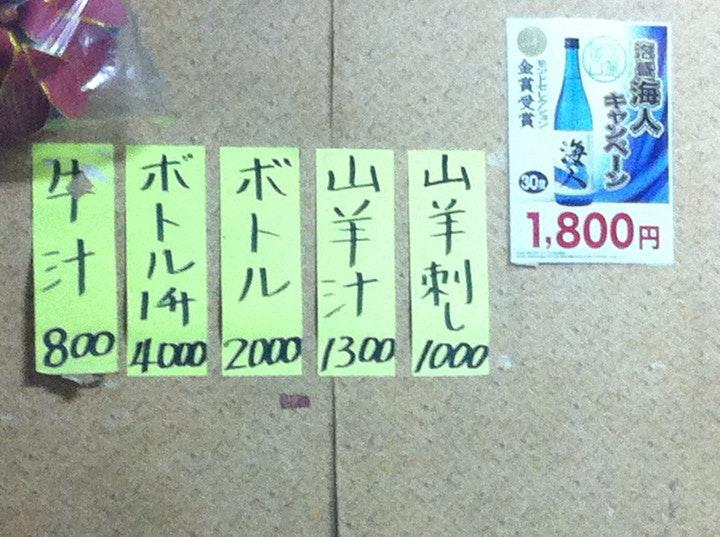 山羊刺し
1000
山羊汁
1300
ボトル
2000
ボトル1升
4000
牛汁
800
泡盛
海人
キャンペーン
モンドセレクション
金賞受賞
海人
30度
1,800円